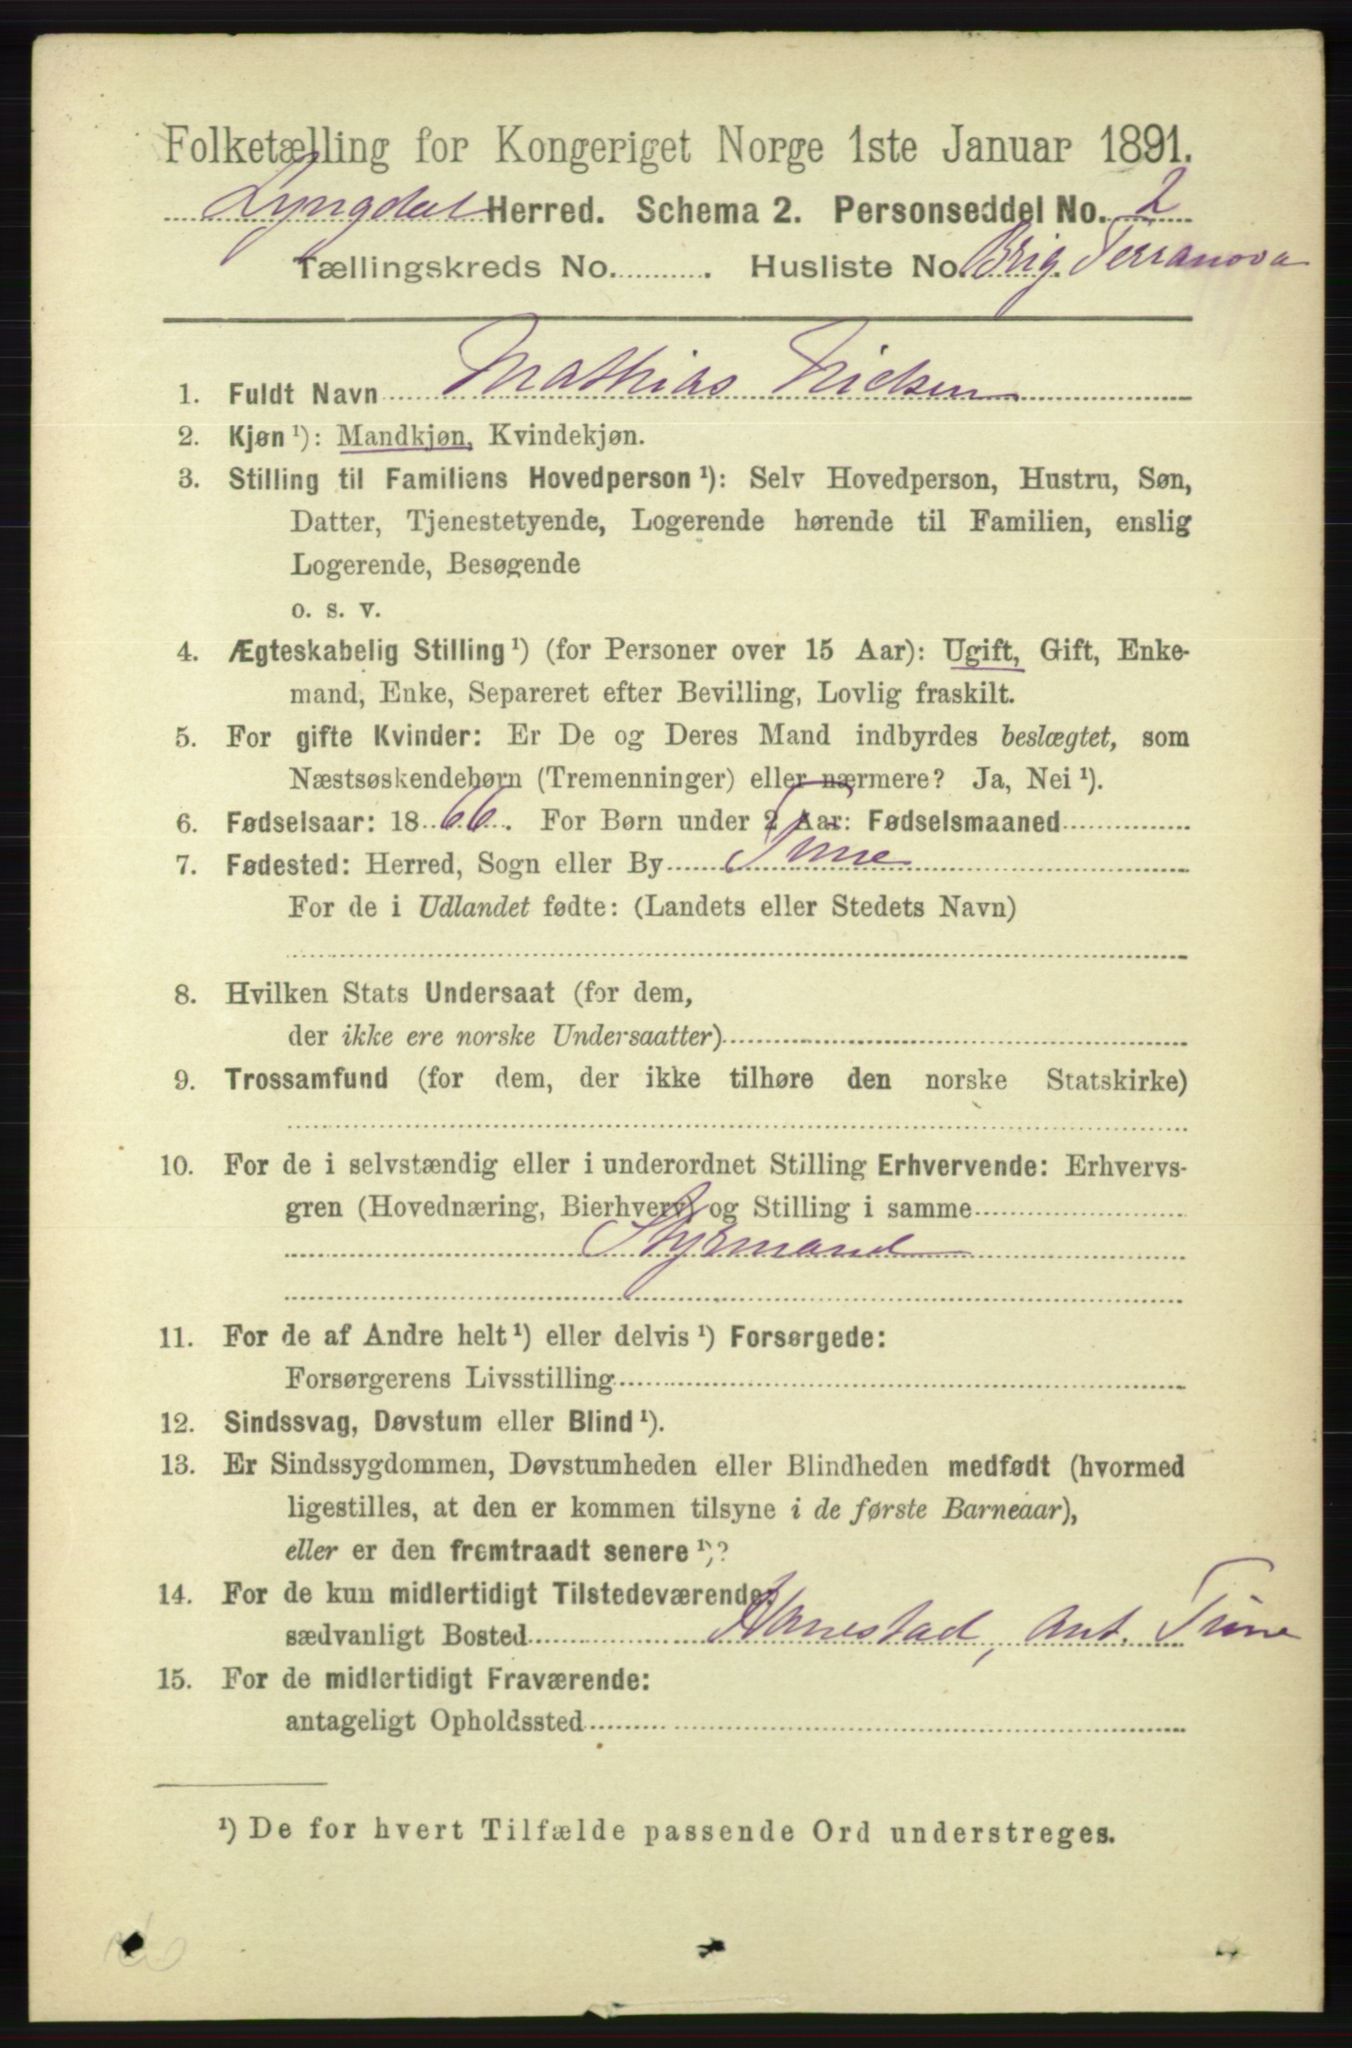 Folketælling for Kongeriget Norge 1ste Januar 1891.
Lyngdal Herred. Schema 2. Personseddel No. 2
Tællingskreds No. . Husliste No. Brig. Terranova
1. Fuldt Navn Mathias Nielsen
2. Kjøn ¹): Mandkjøn, Kvindekjøn.
3. Stilling til Familiens Hovedperson ¹): Selv Hovedperson, Hustru, Søn,
Datter, Tjenestetyende, Logerende hørende til Familien, enslig
Logerende, Besøgende
o. s. v.
4. Ægteskabelig Stilling ¹) (for Personer over 15 Aar): Ugift, Gift, Enke-
mand, Enke, Separeret efter Bevilling, Lovlig fraskilt.
5. For gifte Kvinder: Er De og Deres Mand indbyrdes beslægtet, som
Næstsøskendebørn (Tremenninger) eller nærmere? Ja, Nei ¹).
6. Fødselsaar: 1866. For Børn under 2 Aar: Fødselsmaaned
7. Fødested: Herred, Sogn eller By Tune
For de i Udlandet fødte: (Landets eller Stedets Navn)
8. Hvilken Stats Undersaat (for dem,
der ikke ere norske Undersaatter)
9. Trossamfund (for dem, der ikke tilhøre den norske Statskirke)
10. For de i selvstændig eller i underordnet Stilling Erhvervende: Erhvervs-
gren (Hovednæring, Bierhverv) og Stilling i samme
Styrmand
11. For de af Andre helt ¹) eller delvis ¹) Forsørgede:
Forsørgerens Livsstilling
12. Sindssvag, Døvstum eller Blind ¹).
13. Er Sindssygdommen, Døvstumheden eller Blindheden medfødt (hvormed
ligestilles, at den er kommen tilsyne i de første Barneaar),
eller er den fremtraadt senere ¹)?
14. For de kun midlertidigt Tilstedeværende:
sædvanligt Bosted Hanestad, Ant. Tune
15. For de midlertidigt Fraværende:
antageligt Opholdssted
¹) De for hvert Tilfælde passende Ord understreges.